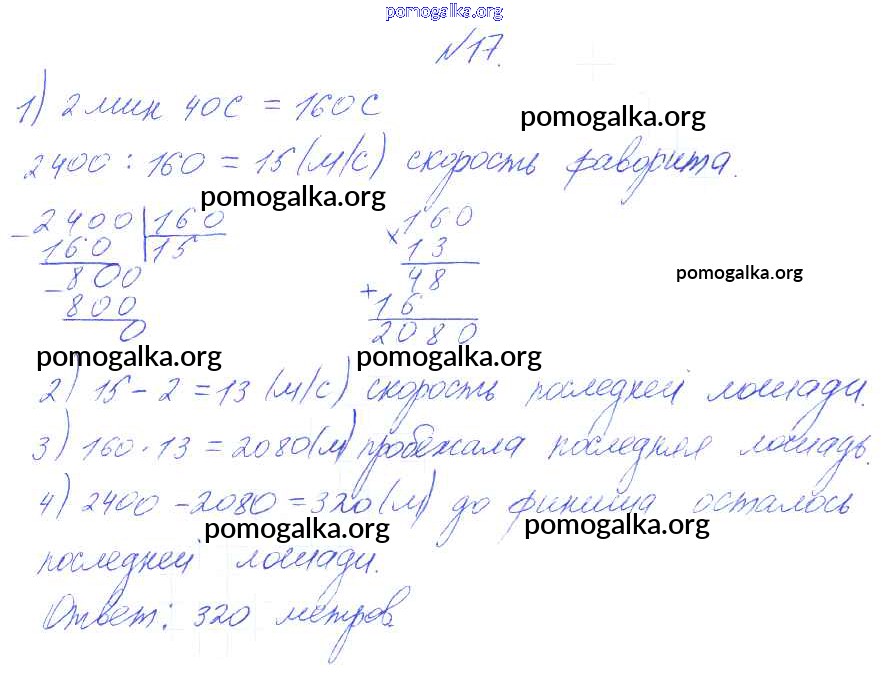 pomogalka.org
№17.
1) 2 мин 40с = 160с
pomogalka.org
2400 : 160 = 15 (м/с) скорость фаворита.
pomogalka.org
- 2400 | 160
160 | 15
- 800
800
0
× 160
13
48
+ 16
2080
pomogalka.org
pomogalka.org
pomogalka.org
2) 15 - 2 = 13 (м/с) скорость последней лошади.
3) 160 · 13 = 2080 (м) пробежала последняя лошадь.
4) 2400 - 2080 = 320 (м) до финиша осталось
pomogalka.org
pomogalka.org
последней лошади.
Ответ: 320 метров.